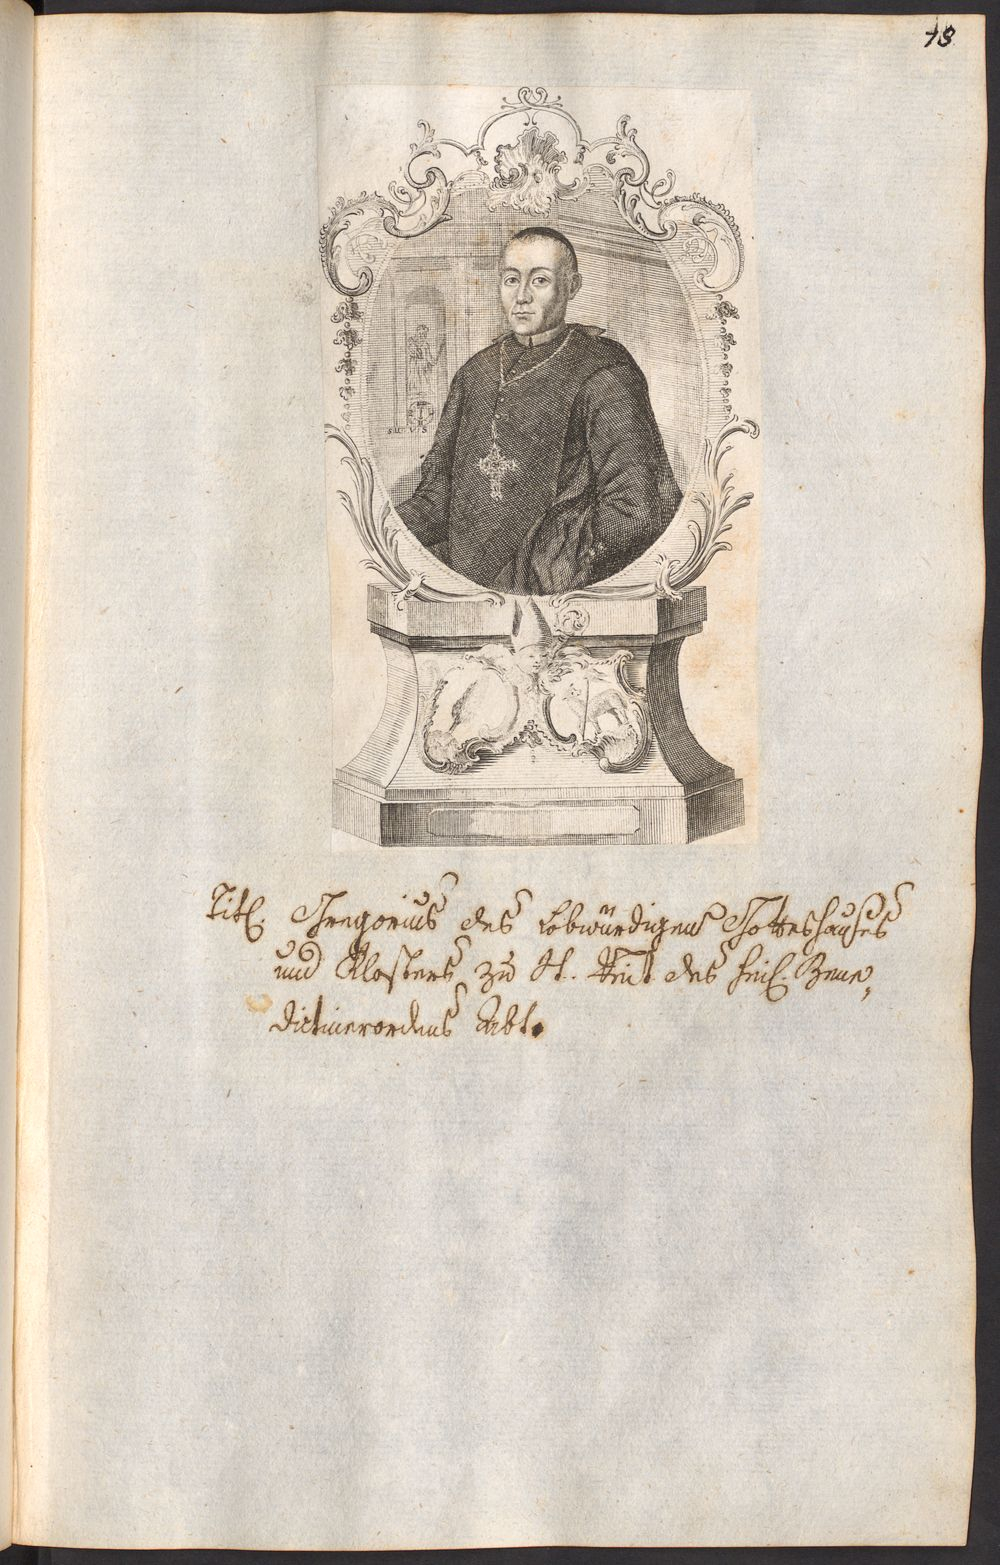 78
SU V S
Titl. Gregorius des Lobwürdigen Gotteshauses
und Klosters zu St. Veit des heil. Bene„
dictinerordens Abt.